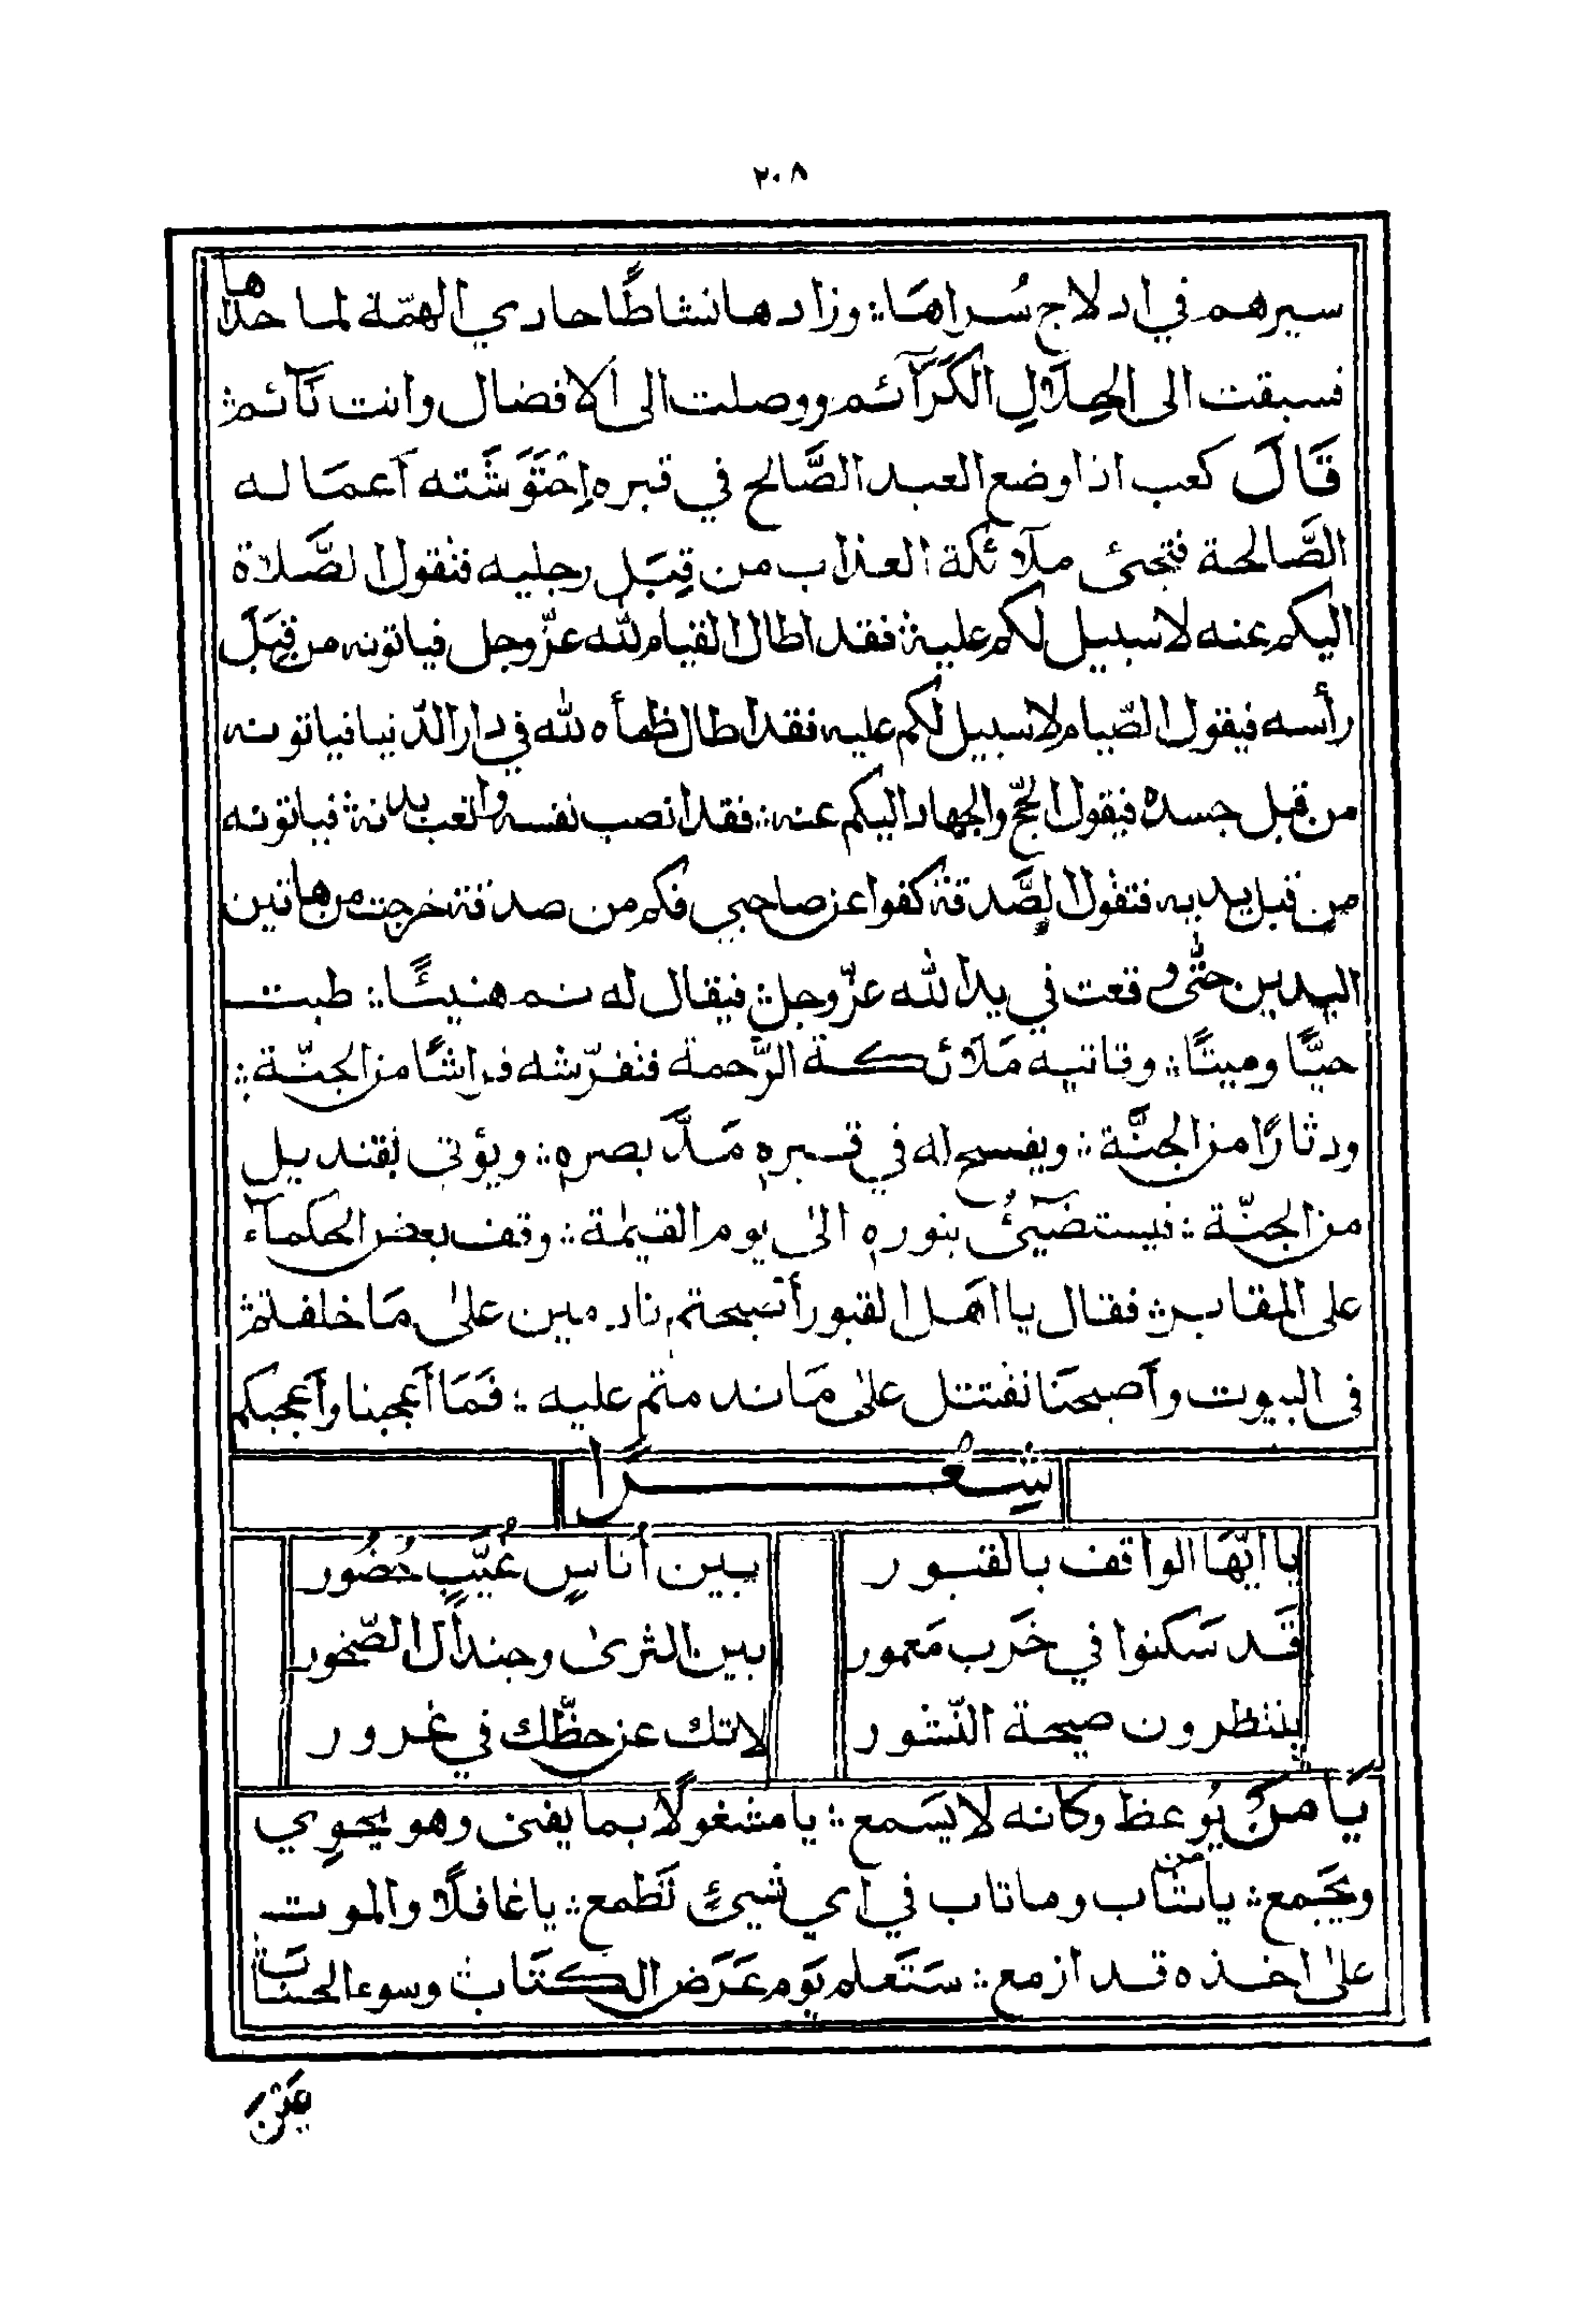 ٢٠٨
سيرهم في ادلاج سُراهَا؞ وزادها نشاطًا حادي الهمّة لما حداها
فسبقت الى الخِلَالِ الكَرَآئم ووصلت الى الافضال وانت نَآئم؞
قَالَ كعب اذا وضع العبد الصَّالح في قبره اِحْتَوَشَته اَعمَاله
الصَّالحة فتجئ ملآئكة العذاب من قِبَل رجليه فتقول الصَّلاة
اليكم عنه لا سبيل لكم عليه؞ فقد اطال القيام لله عزّ وجل فياتونه من قِبَل
رأسه فيقول الصّيام لا سبيل لكم عليه فقد اطال ظمأه لله في دار الدّنيا فياتونه
من قبل جسده فيقول الحجّ والجهاد اليكم عنه؞ فقد انصب نفسه واتعب بدنه؞ فياتونه
من قبل يديه فتقول الصَّدقة كفوا عن صاحبي فكم من صدقة خرجت من هاتين
اليدين حتّى وقعت في يد الله عزّ وجل؞ فيقال له نم هنيئًا؞ طبت
حيًّا وميتًا؞ وتاتيه مَلَائكة الرَّحمة فتفرّشه فراشًا من الجنّة؞
ودثارًا من الجنَّة؞ ويفسح له في قبرهِ مَدَّ بصرهِ؞ ويؤتى بقنديل
من الجنّة؞ فيستضَيئُ بنورهِ الى يوم القيٰمة؞ وقف بعض الحكمآء
على المقابر؞ فقال يا اهَل القبور أصبحتم نادمين على مَا خلفتم؞
فى البيوت وأصبحنَا نفتتل على مَا ندمتم عليه؞ فَمَا أعجبنا وأعجبكم
شِعْرًا
يا ايّهَا الواقف بالقبور بين أناسٍ غُيَّبٍ حُضُور
قَد سَكنوا في خَرب مَعمور بين الثرى وجندل الصّخور
ينتظرون صيحة النّشور لاتك عن حظّك في غرور
يَا مَن يُوعظ وكانه لا يَسَمع؞ يا مشغولًا بما يفنى وهو يحوِي
ويَجمع؞ يا من شاب وما تاب في اي شيئٍ تَطمع؞ يا غافلًا والموت
على اخذه قد ازمع؞ سَتَعلم يَوم عَرَض الكتَاب؞ وسوء الحسَاب